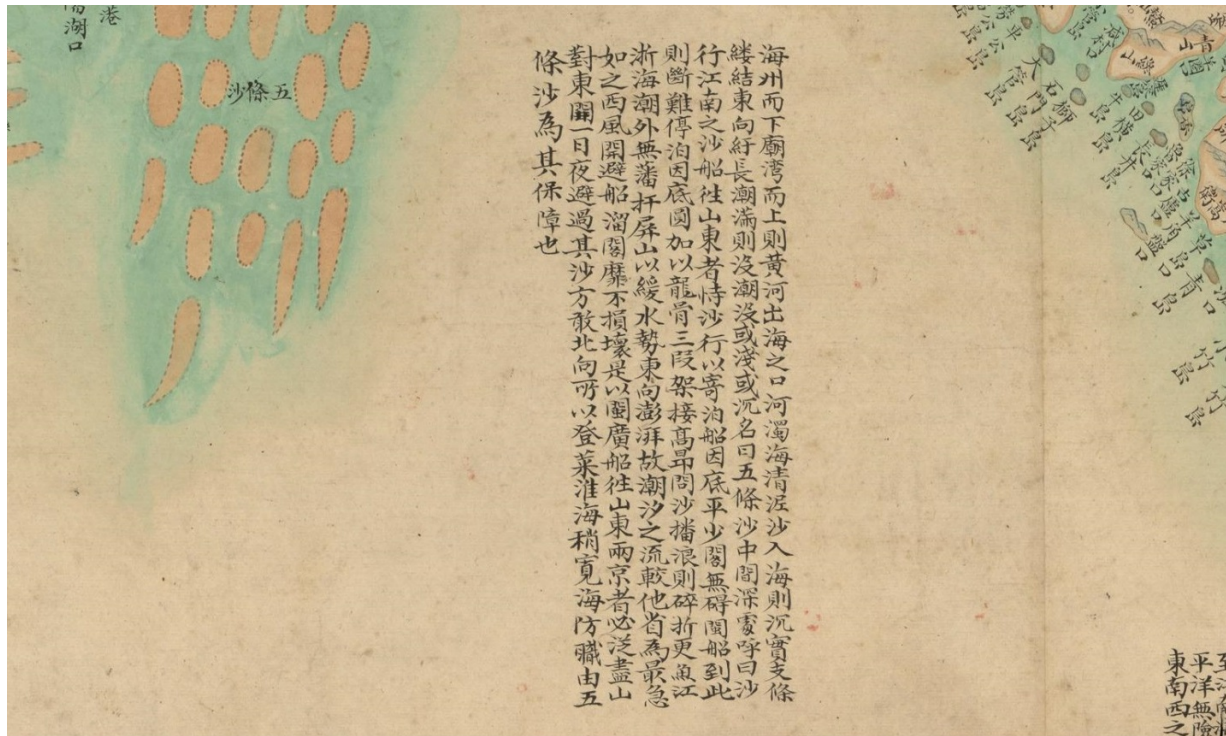 海州而下廟灣而上則黃河出海之口河濁海清泥沙入海則沉實支條
縷結東向紆長潮滿則没潮没或淺或沉名曰五條沙中間深處呼曰沙
行江南之沙船徃山東者恃沙行以寄泊船因底平少閣無碍閩船到此
則斷難停泊因底圓加以龍骨三段架接高昂問沙播浪則碎折更兼江
浙海潮外無藩扞屏山以緩水勢東向澎湃故潮汐之流較他省為最急
如之西風開避船溜閣靡不損壞是以閩廣船徃山東兩京者必泛盡山
對東開一日夜避過其沙方敢北向所以登萊淮海稍寬海防職由五
條沙為其保障也
五條沙
港
湖口
青島
草島
竹島
小竹島
田橫島
大管島
石門島
平島
東南西之
平洋無險